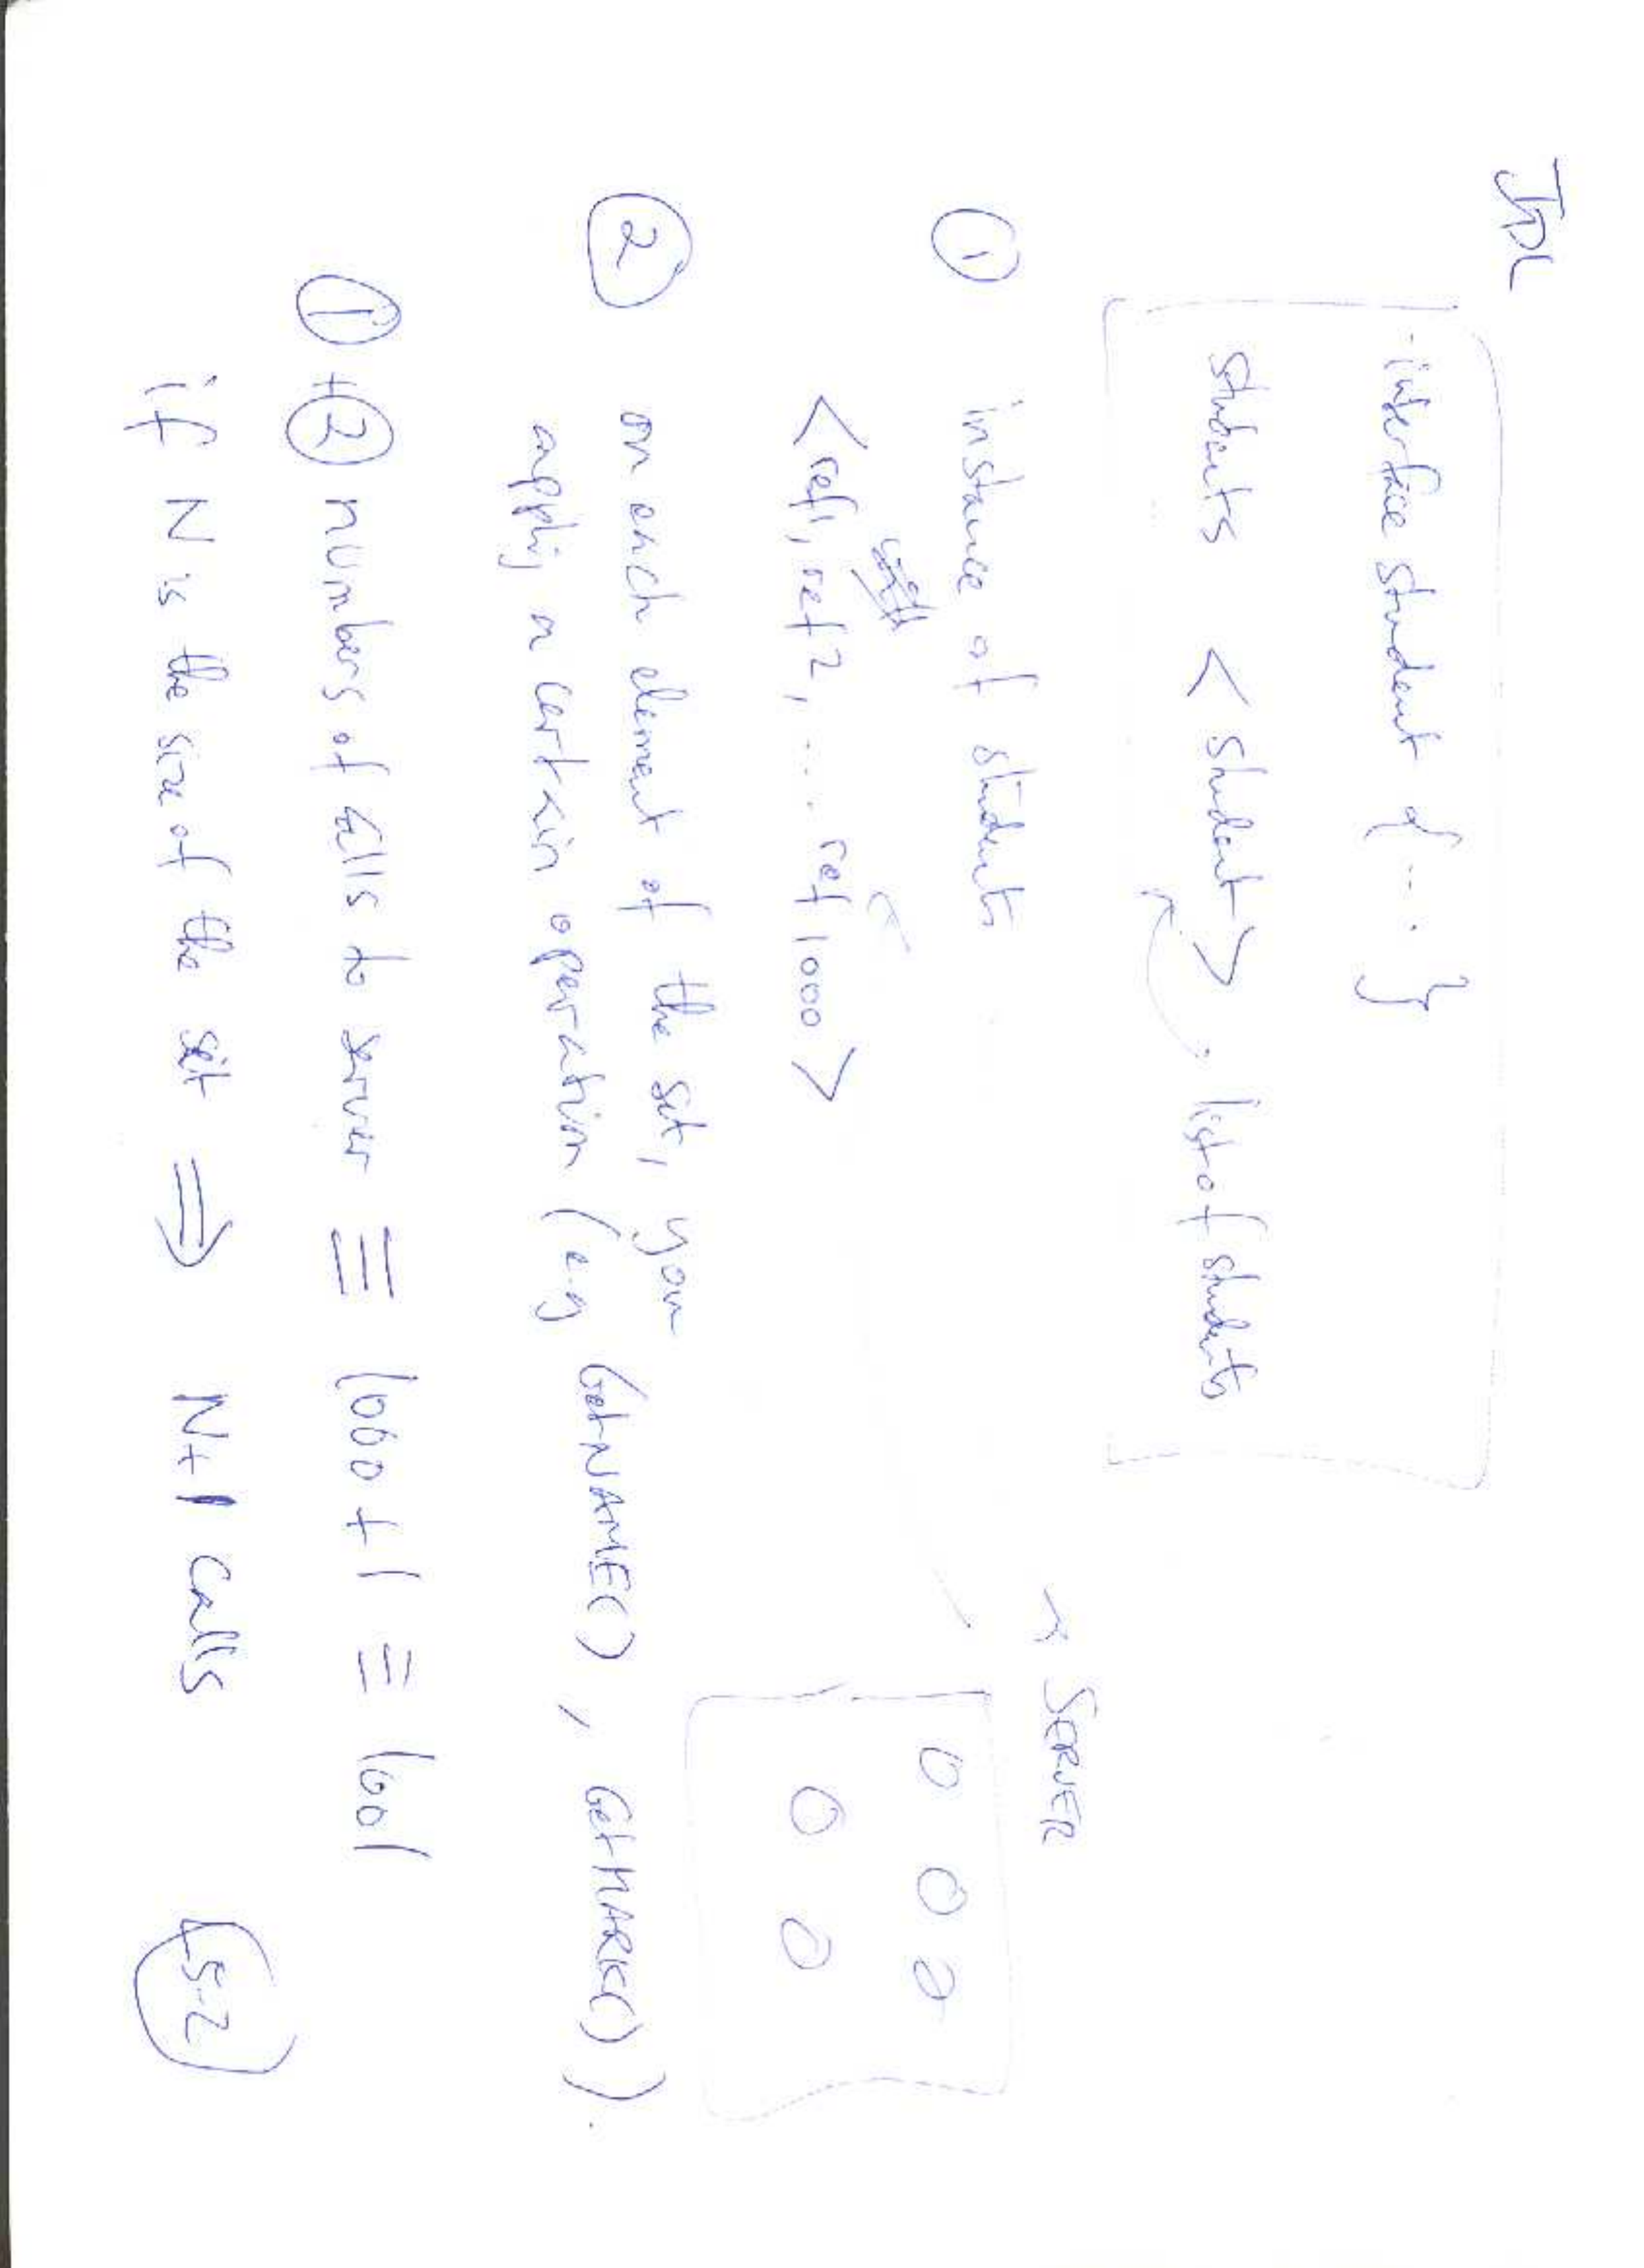 IDL
interface student { ... }
students < student > list of students
① instance of students
SERVER
< ref1, ref2, .... ref1000 >
② on each element of the set, you
apply a certain operation (e.g GetNAME(), GetMARK()).
① + ② numbers of calls to server ≡ 1000 + 1 ≡ 1001
if N is the size of the set ⇒ N+1 calls
L5-2